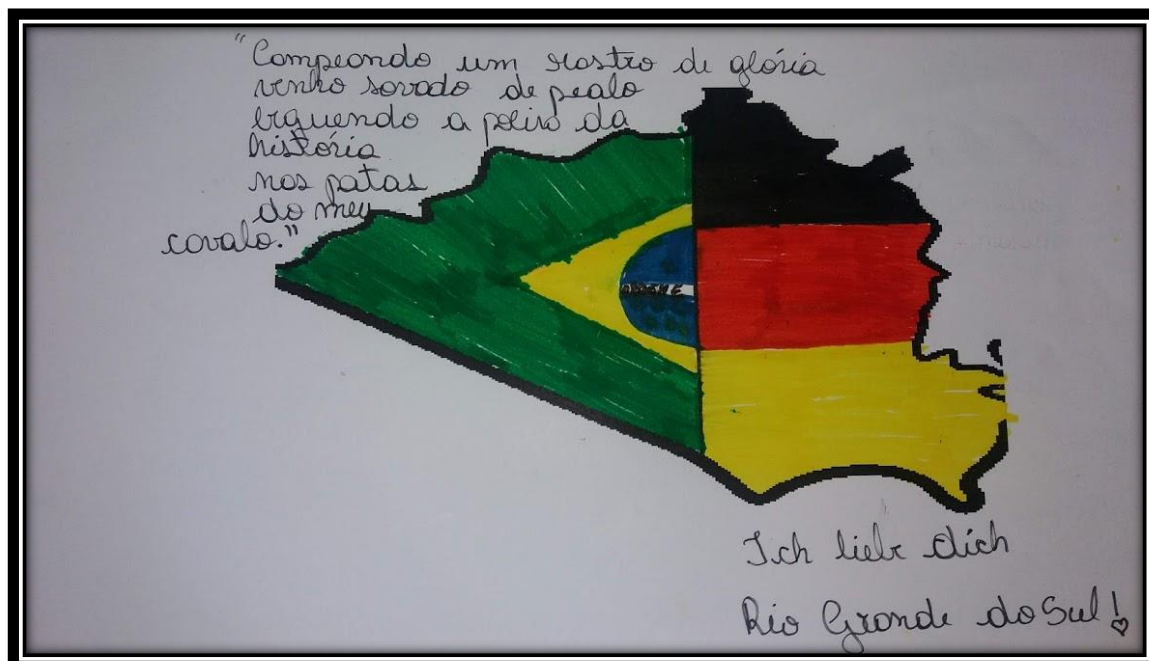 "Campeando um rastro de glória
venho sovado de pealo
erguendo a poeira da
história
nas patas
do meu
cavalo."
Ich liebe dich
Rio Grande do Sul!